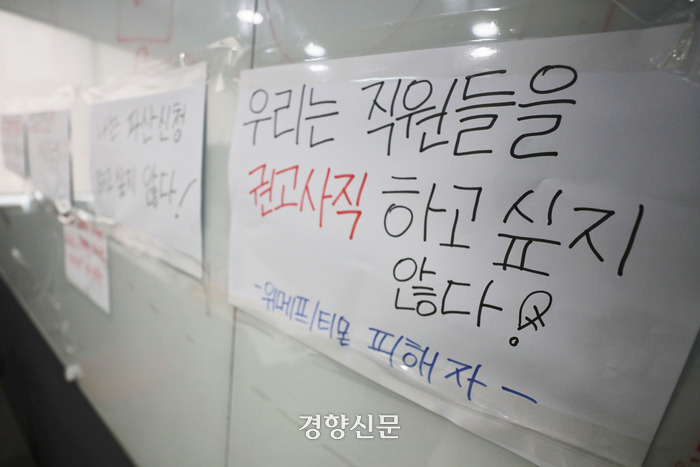 나는 파산신청
하고 싶지 않다!
우리는 직원들을
권고사직 하고 싶지
않다!
-위메프/티몬 피해자-
경향신문